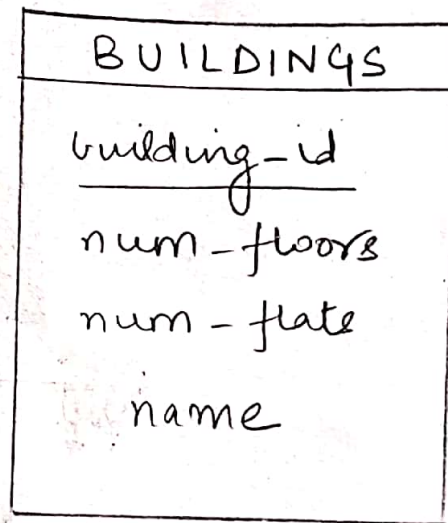 BUILDINGS
building-id
num-floors
num-flats
name